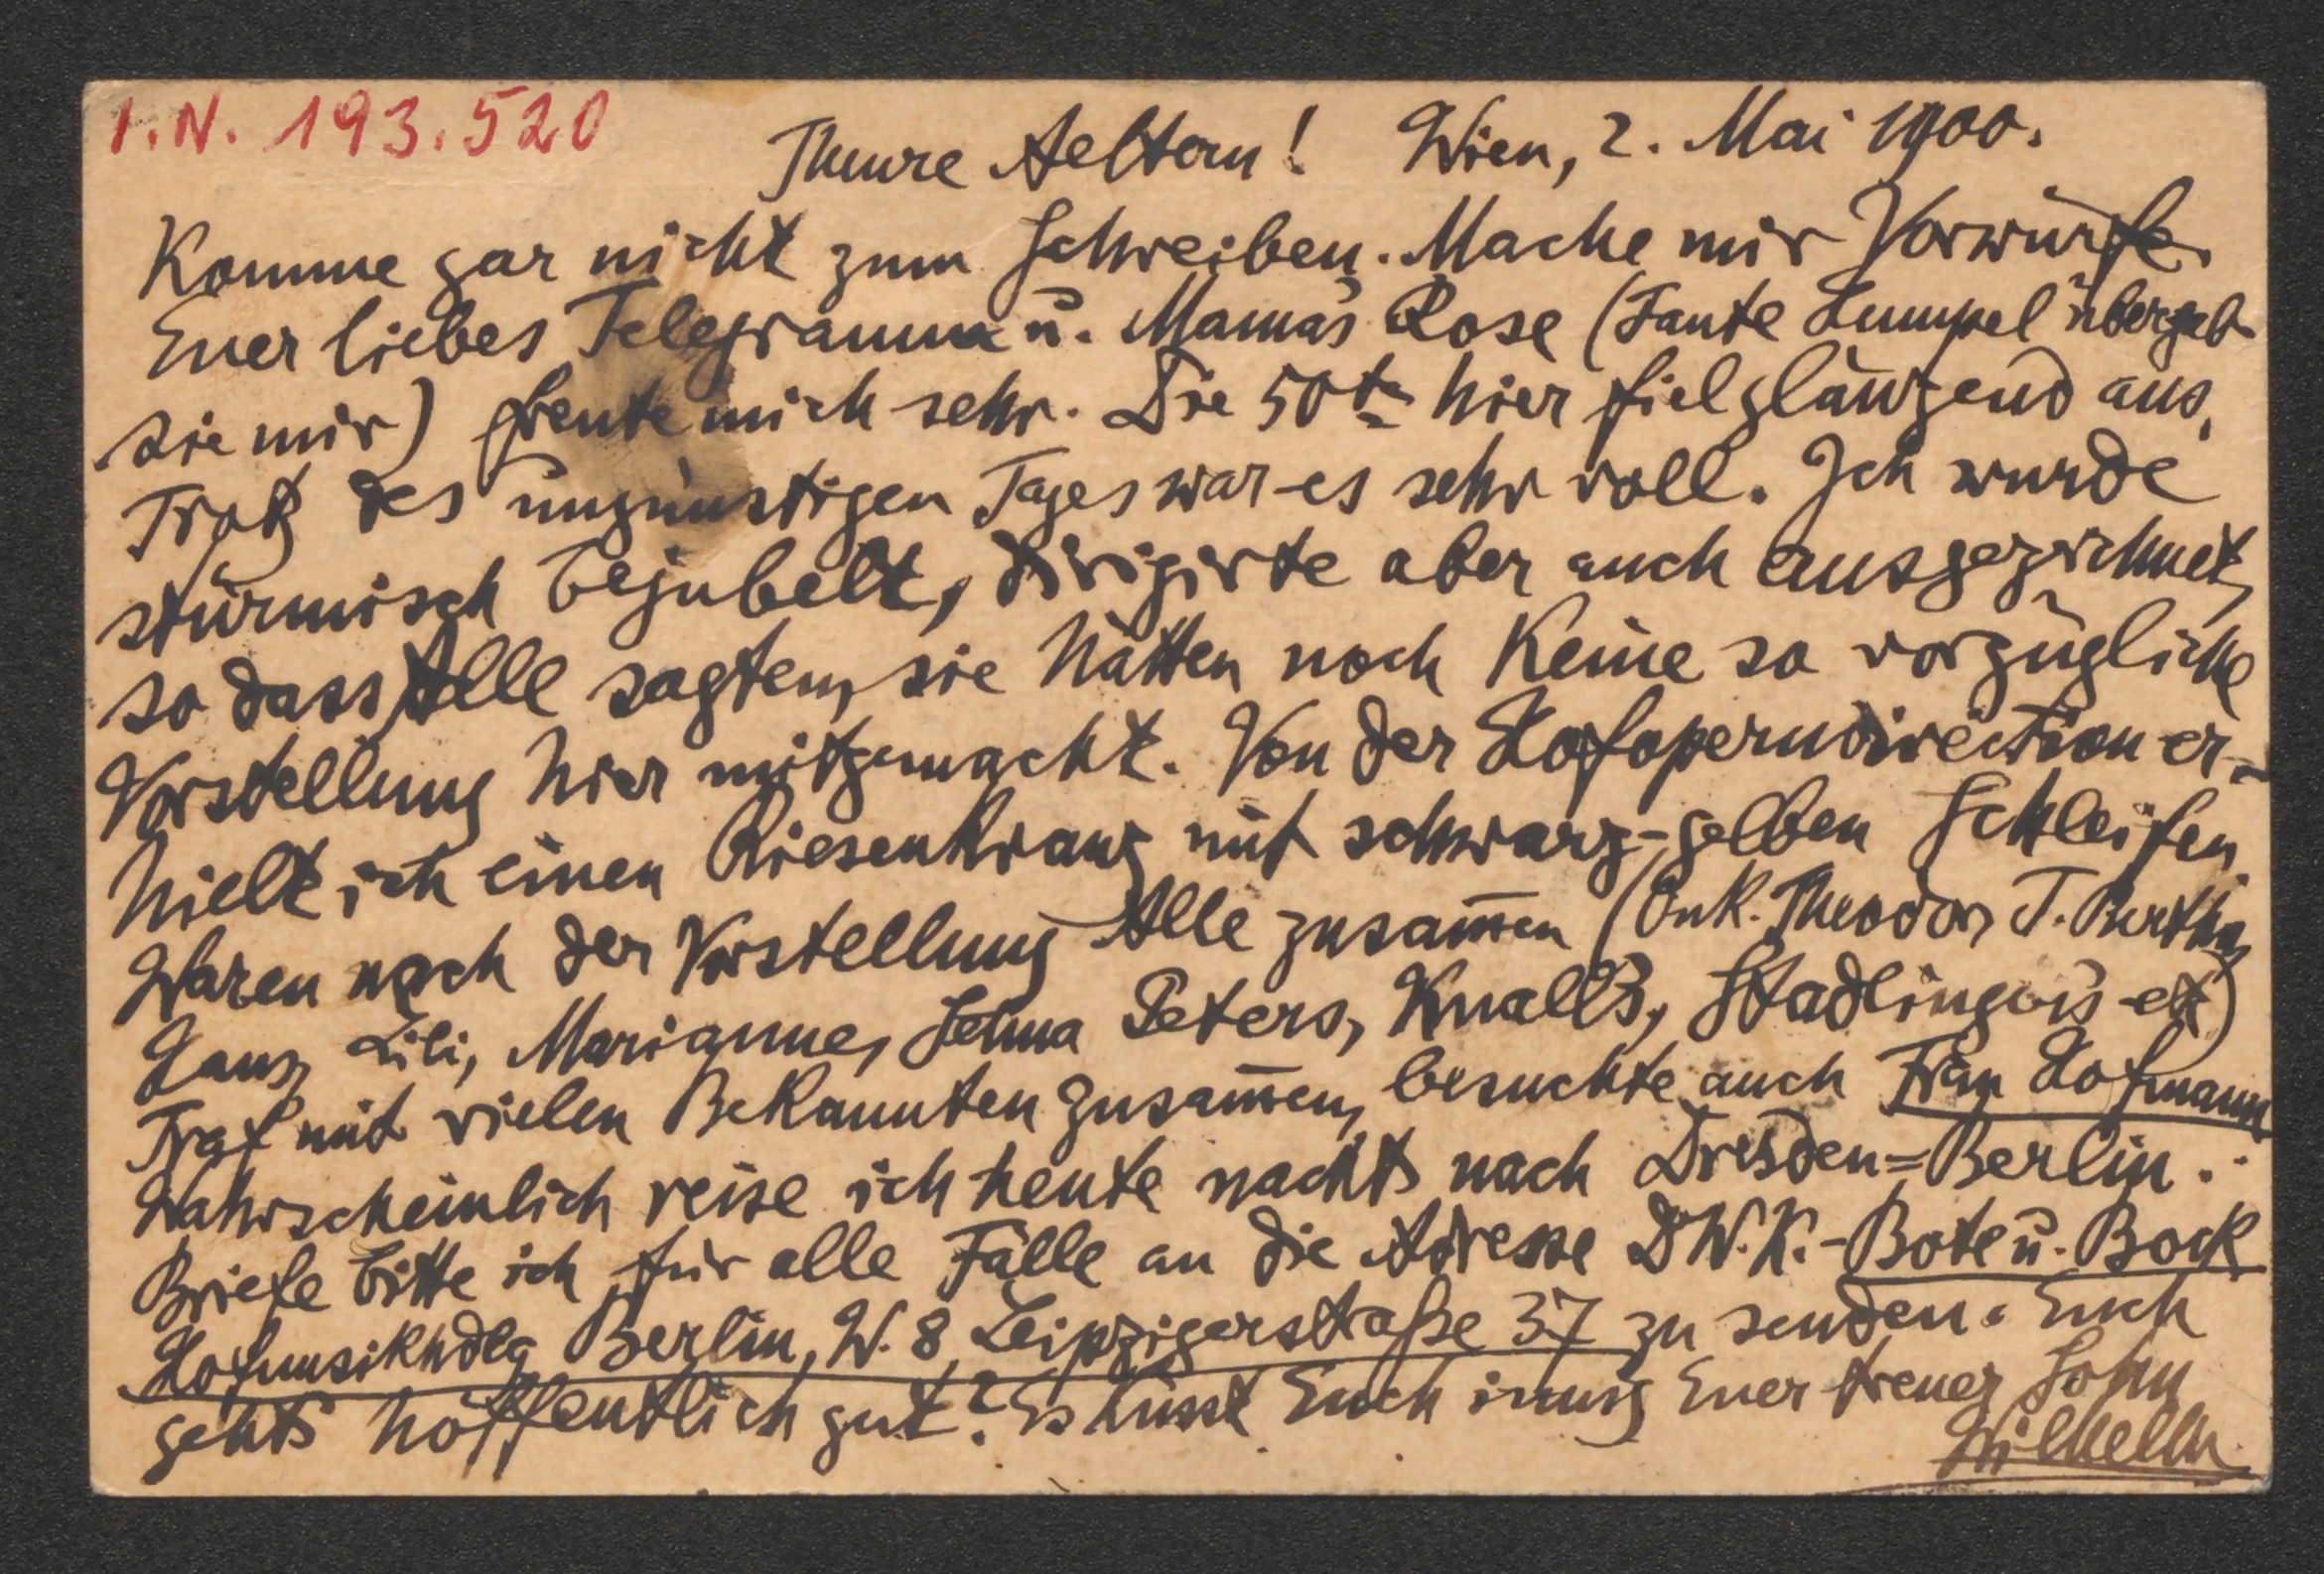 I.N. 193.520
Theure Aeltern! Wien, 2. Mai 1900.
Komme gar nicht zum Schreiben. Mache mir Vorwürfe.
Euer liebes Telegramm u. Mamas Rose (Tante Lumpel übergab
sie mir) freute mich sehr. Die 50te hier fiel glänzend aus.
Trotz des ungünstigen Tages war es sehr voll. Ich wurde
stürmisch bejubelt, dirigirte aber auch ausgezeichnet,
so dass Alle sagten, sie hätten noch keine so vorzügliche
Vorstellung hier mitgemacht. Von der Hofoperndirection er-
hielt ich einen Riesenkranz mit schwarz-gelben Schleifen.
Waren nach der Vorstellung Alle zusam̄en (Onk. Theodor, T. Bertha,
Hans, Lili, Marianne, Selma Peters, Knalls, Stadlingers etc)
Traf mit vielen Bekannten zusam̄en, besuchte auch Frau Hofmann
Wahrscheinlich reise ich heute nachts nach Dresden=Berlin.
Briefe bitte ich für alle Fälle an die Adresse D W. K.-Bote u. Bock
Hofmusikhdlg Berlin, W. 8, Leipzigerstraße 37 zu senden. Euch
gehts hoffentlich gut? Es küsst Euch innig Euer treuer Sohn
Wilhelm